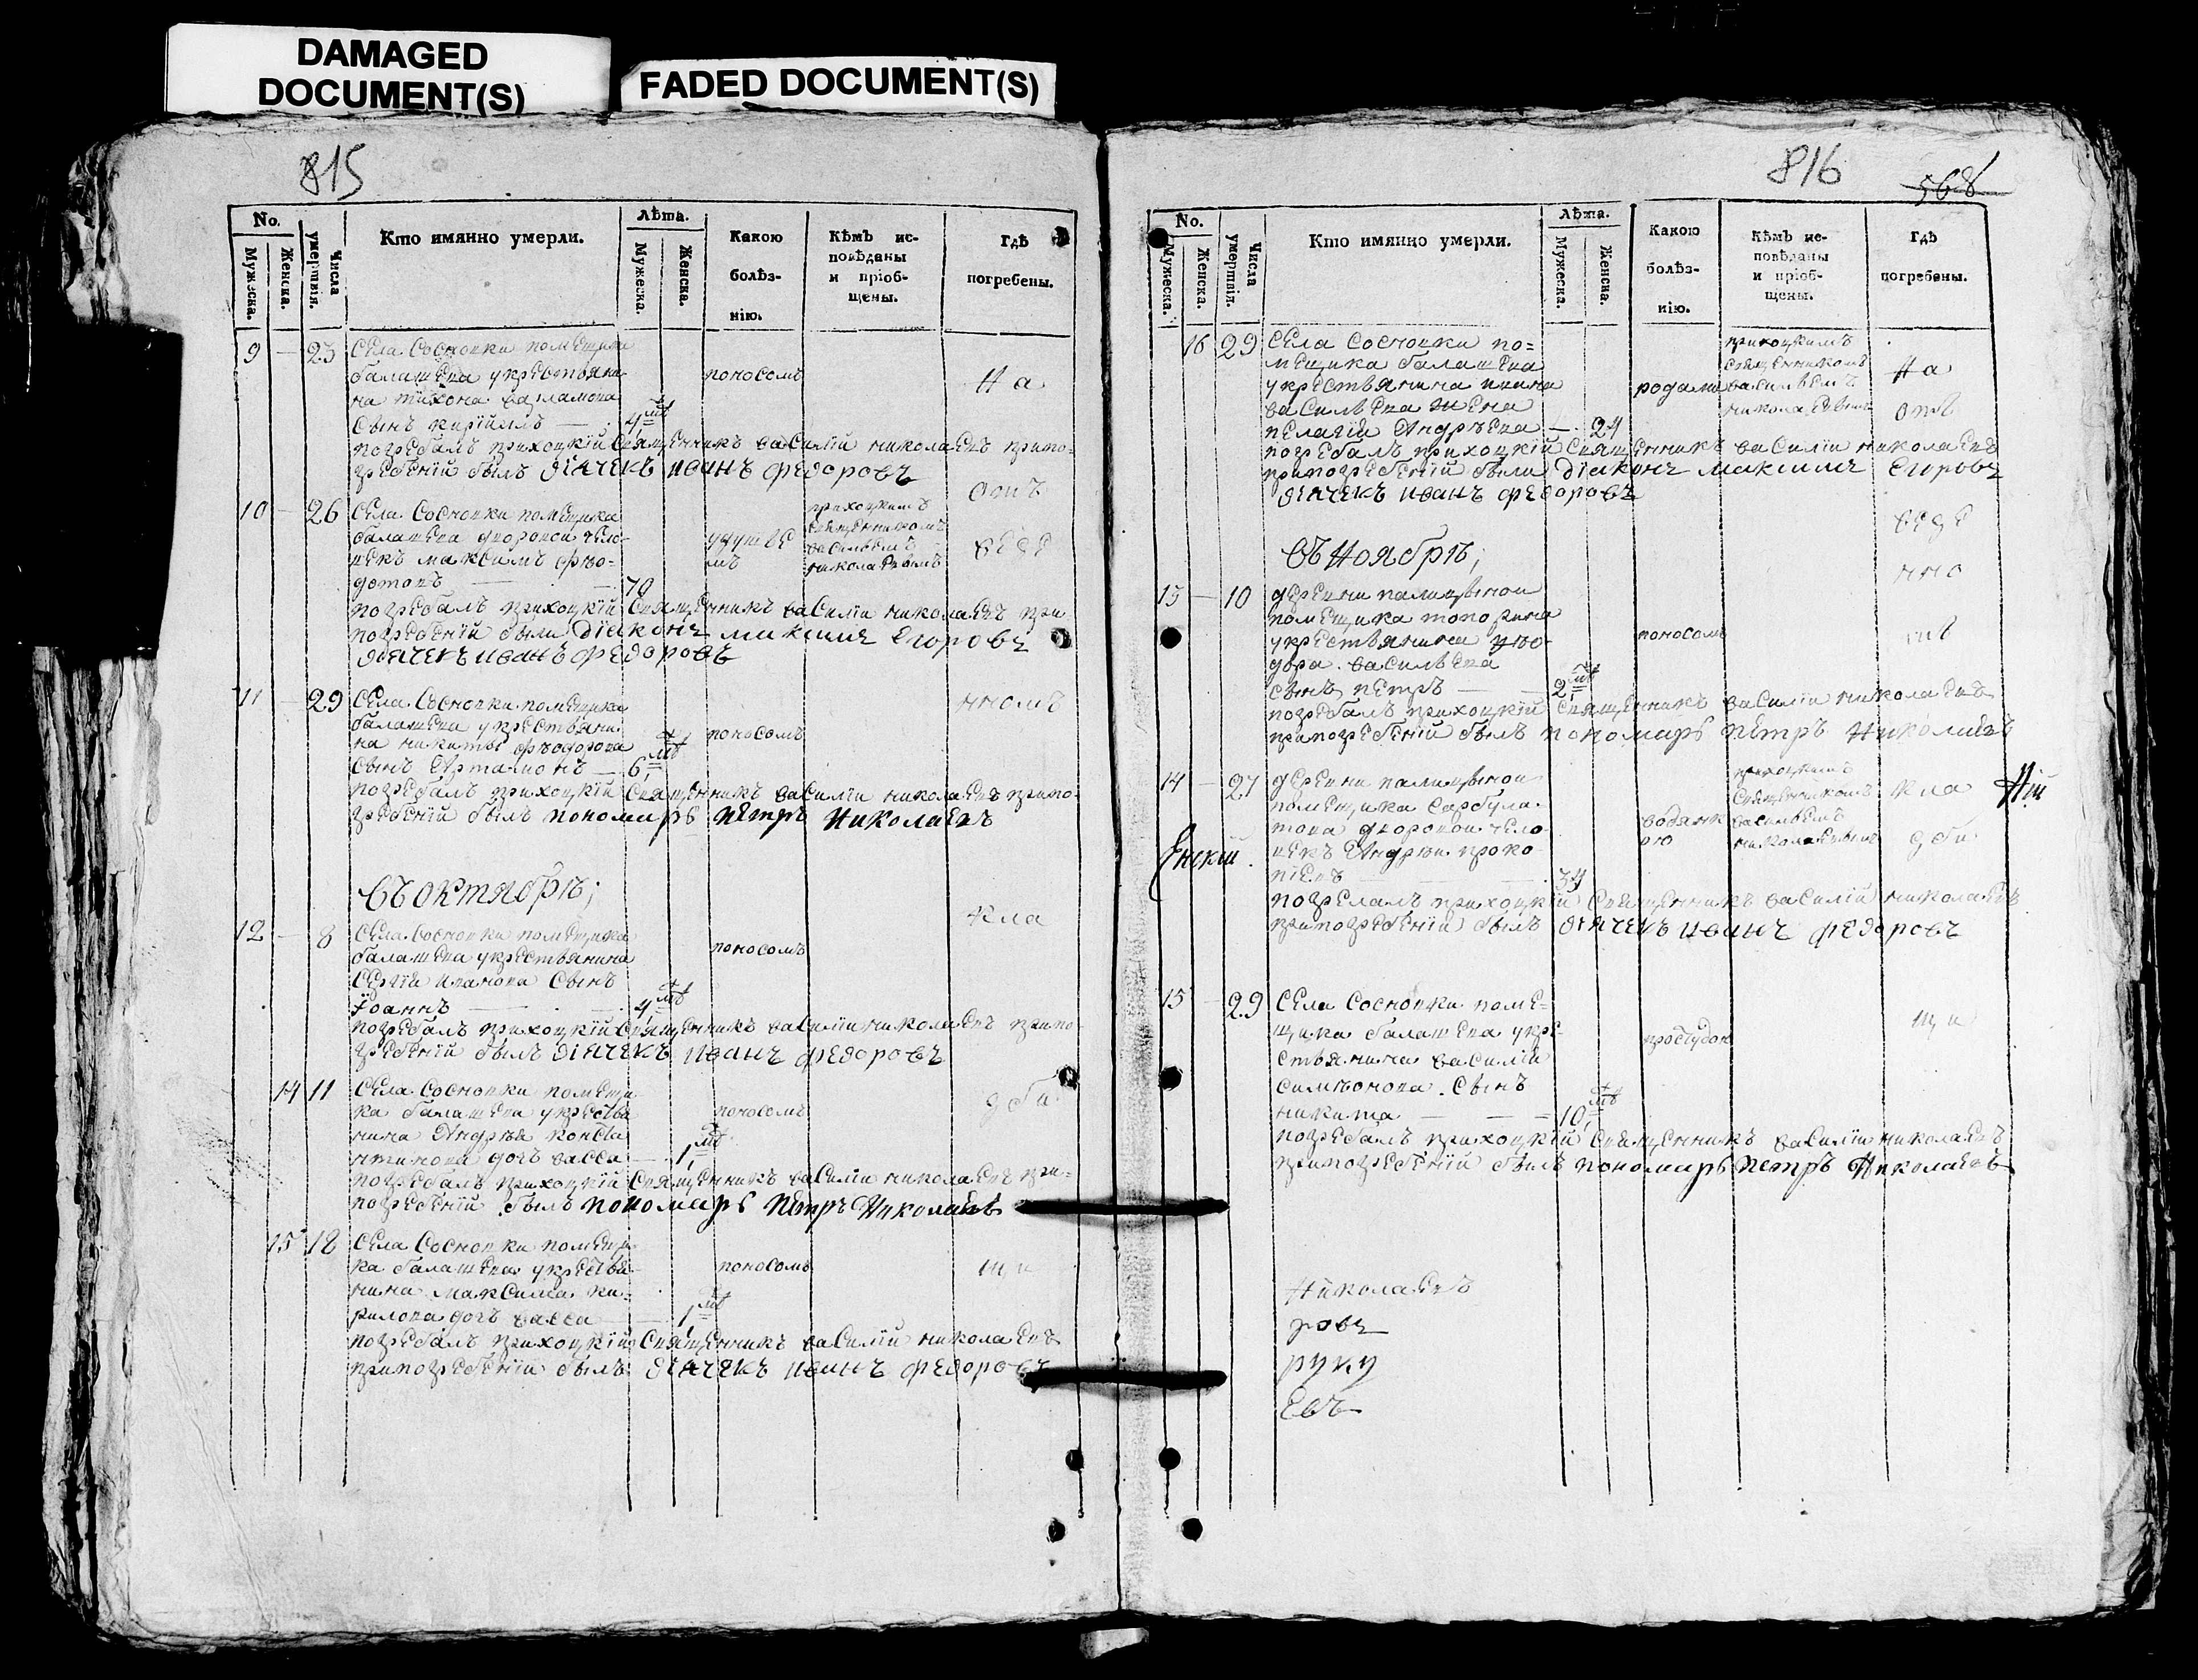 DAMAGED
DOCUMENT(S)
FADED DOCUMENT(S)
815
No.
Мужеска.
Женска.
Числа умертвія.
Кто имянно умерли.
Лѣта.
Мужеска.
Женска.
Какою
болѣз-
нію.
Кѣмъ ис-
повѣданы
и пріоб-
щены.
Гдѣ
погребены.
9 — 23 Села Сосновки помещика
балашева укрестьяни
на тихона варламова
Сынъ 4 лѣ
поносомъ
На
погребалъ прихоцкій Священникъ василій николаевъ припо-
гребеній былъ дьячекъ иванъ федоровъ
10 — 26 Села Сосновки помещика
балашева дворовой чело-
векъ максимъ фѣо-
дотовъ — 70
удушье
мъ
прихоцкимъ
священникомъ
васильемъ
николаевымъ
отъ
веде
погребалъ прихоцкій Священникъ василіи николаевъ при
погребеній были діаконъ максимъ Егоровъ
дьячекъ иванъ федоровъ
11 — 29 Села Сосновки помещика
балашева укрестьяни
на никиты фѣодорова
Сынъ Артамонъ — 6 лѣ
поносомъ
нномъ
погребалъ прихоцкій священникъ василіи николаевъ припо-
гребеній былъ пономарь петръ николаевъ
въ октябрѣ;
12 — 8 Села Сосновки помещика
балашева укрестьянина
Сергія иванова Сынъ
Іоаннъ — 4 лѣ
поносомъ
кла
погребалъ прихоцкій священникъ василіи николаевъ припо-
гребеній былъ дьячекъ иванъ федоровъ
14 11 Села Сосновки помещи
ка балашева укрестья
нина Андрѣя конста
нтинова дочь васса — 1 лѣ
поносомъ
дби
погребалъ прихоцкій Священникъ василіи николаевъ при-
погребеній былъ пономарь петръ николаевъ
15 18 Села Сосновки помещи
ка балашева укрестья-
нина максима ки-
рилова дочь васса 1 лѣ
поносомъ
щи
погребалъ прихоцкій Священникъ василій николаевъ
припогребеніи былъ дьячекъ иванъ федоровъ
816
568
No.
Мужеска.
Женска.
Числа умертвія.
Кто имянно умерли.
Лѣта.
Мужеска.
Женска.
Какою
болѣз-
нію.
Кѣмъ ис-
повѣданы
и пріоб-
щены.
Гдѣ
погребены.
16 29 Села Сосновки по-
мещика балашева
укрестьянина
васильева жена
пелагія Андрѣева — 24
родами
прихоцкимъ
священникомъ
васильемъ
николаевымъ
На
отъ
погребалъ прихоцкій Священникъ василіи николаевъ
припогребеній были діаконъ максимъ Егоровъ
дьячекъ иванъ федоровъ
веде
въ Ноябрѣ;
нно
13 — 10 деревни палицыной
помещика топорина
укрестьянина фѣо-
дора васильева
сынъ петръ — 2 лѣ
поносомъ
погребалъ прихоцкій священникъ василіи николаевъ
припогребеній былъ пономарь петръ Николаевъ
14 — 27 деревни палицыной
помещика сарбула-
това дворовой чело
векъ Андрѣи проко-
піевъ — 34
водянк
ою
прихоцкимъ
Священникомъ
васильемъ
николаевымъ
кла
дби
погребалъ прихоцкій Священникъ василій николаевъ
припогребеній былъ дьячекъ иванъ федоровъ
15 — 29 Села Сосновки поме-
щика балашева укре
стьянина василія
симѣонова Сынъ
никита — 10 лѣ
простудою
щи
погребалъ прихоцкій священникъ василіи николаевъ
припогребеній былъ пономарь петръ Николаевъ
Николаевъ
ровъ
руку
Евъ